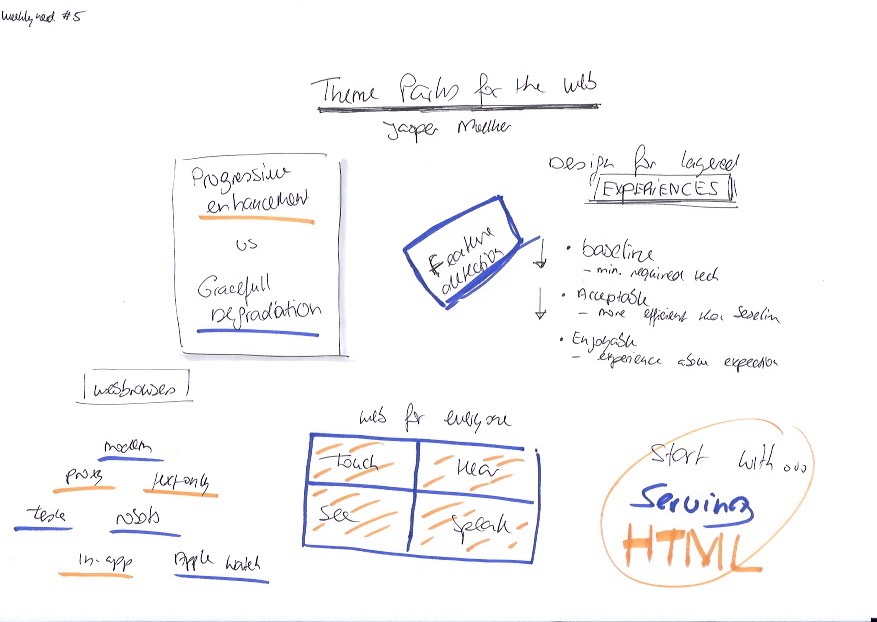 weeklynerd #5
Theme Parks for the web
Jasper Moelker
Progressive
enhancement
vs
Gracefull
Degradation
Feature
detection
Design for layered
EXPERIENCES
• baseline
- min. required tech
• Acceptable
- more efficient than baseline
• Enjoyable
- experience above expection
webbrowsers
modern
proxy text-only
tesla robots
in-app Apple watch
web for everyone
Touch Hear
See Speak
Start with...
Serving
HTML